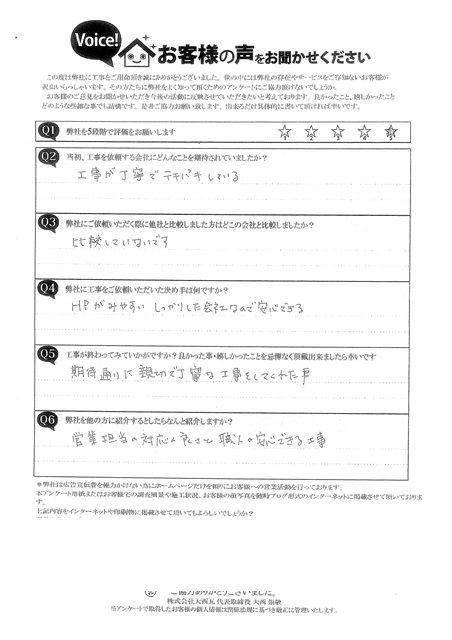 Voice!
お客様の声をお聞かせください
この度は弊社に工事をご用命頂き誠にありがとうございました。世の中には弊社の存在やサービスをご存知ないお客様が
沢山いらっしゃいます。その方たちに弊社をよく知って頂くためのアンケートにご協力頂けないでしょうか。
お客様のご意見をお聞かせいただき今後の活動に反映させていただきたいと考えております。良かったこと、嬉しかったこと
どのような些細な事でも結構です。是非ご協力お願い致します。出来るだけ具体的に書いて頂ければ幸いです。
Q1 弊社を5段階で評価をお願いします ☆1 ☆2 ☆3 ☆4 ☆5
Q2 当初、工事を依頼する会社にどんなことを期待されていましたか?
工事が丁寧でテキパキしている
Q3 弊社にご依頼いただく際に他社と比較しました方はどこの会社と比較しましたか?
比較していないです
Q4 弊社に工事をご依頼いただいた決め手は何ですか?
HPがみやすい しっかりした会社なので安心できる
Q5 工事が終わってみていかがですか?良かった事・嬉しかったことを忌憚なく頂戴出来ましたら幸いです
期待通りに親切で丁寧な工事をしてくれた事
Q6 弊社を他の方に紹介するとしたらなんと紹介しますか?
営業担当の対応の良さと職人の安心できる工事
*弊社は広告宣伝費を極力かけない為にホームページだけを頼りにお客様への営業活動を行っております。
本アンケート用紙またはお客様宅の調査風景や施工状況、お客様の顔写真を随時ブログ形式のインターネットに掲載させて頂いておりま
す。
上記内容をインターネットや印刷物に掲載させて頂いてもよろしいでしょうか?
ご協力ありがとうございました。
株式会社大西瓦 代表取締役 大西
当アンケートで取得したお客様の個人情報は関係法規に基づき厳正に管理いたします。